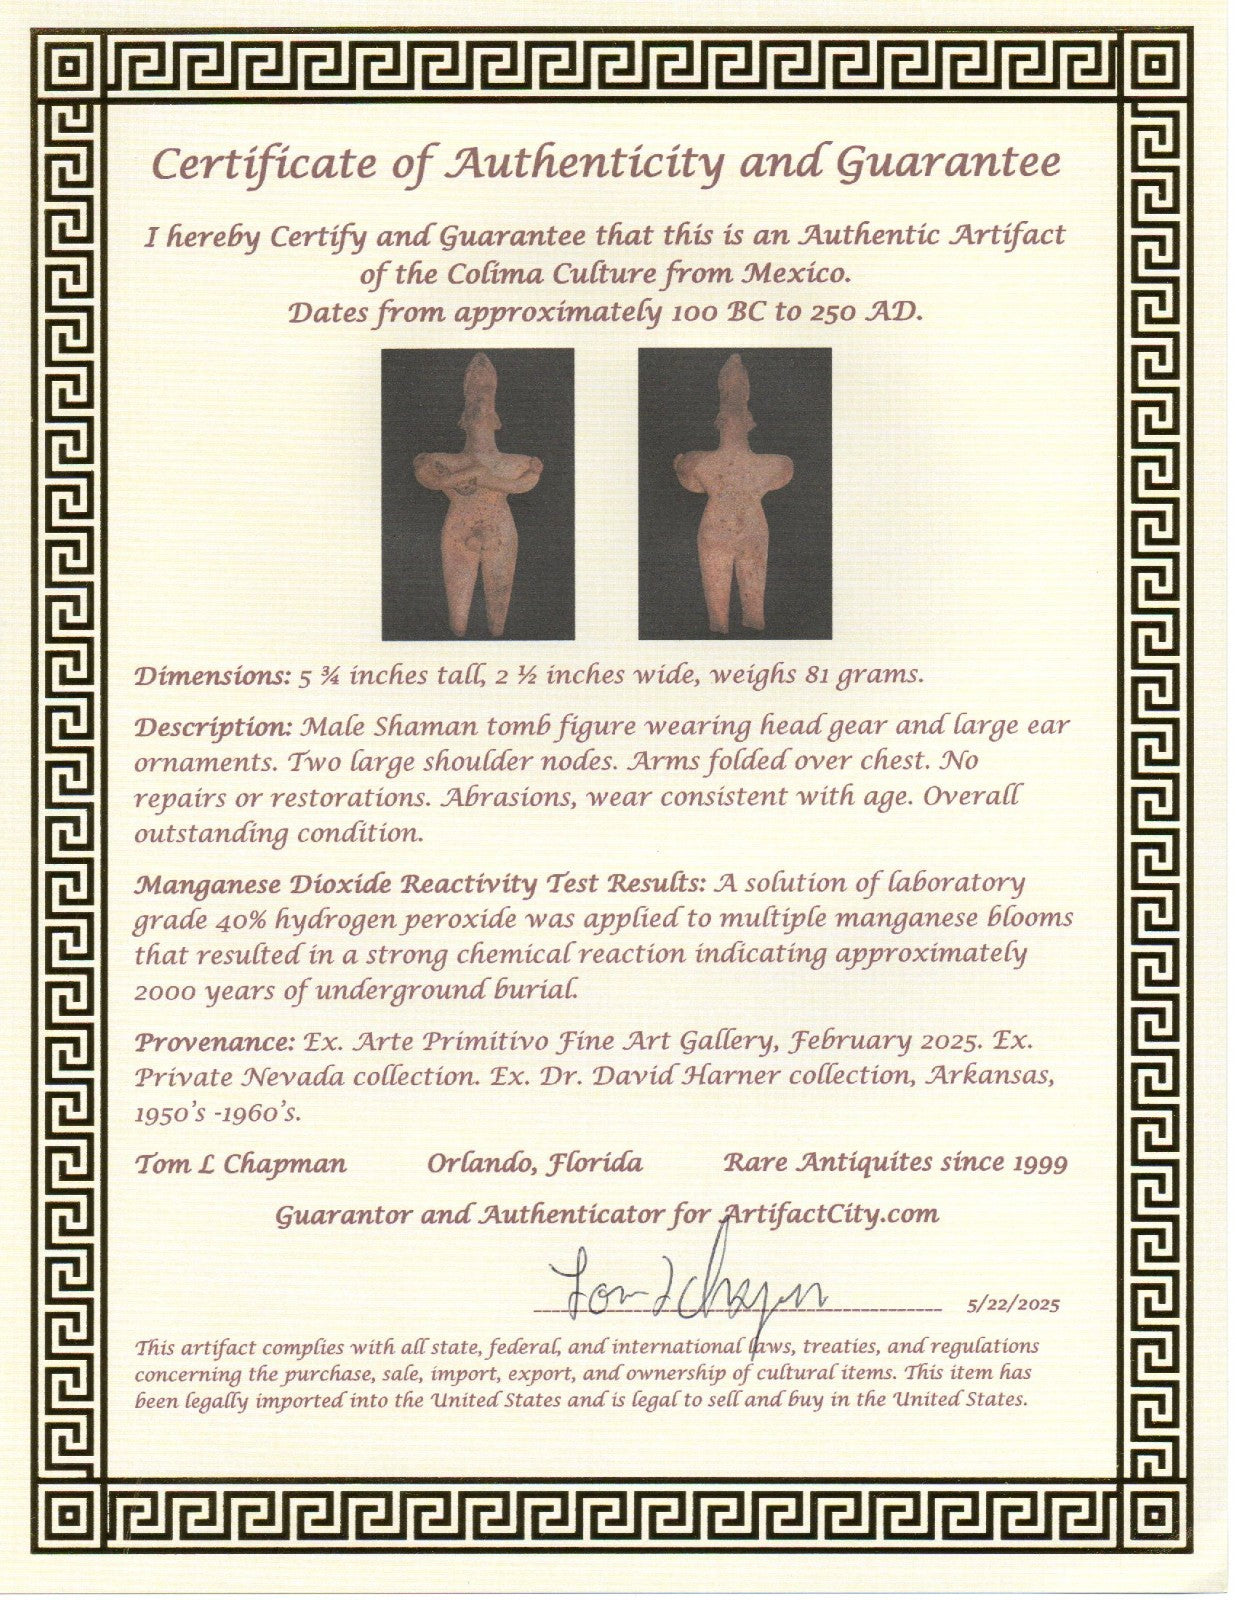 Certificate of Authenticity and Guarantee
I hereby Certify and Guarantee that this is an Authentic Artifact
of the Colima Culture from Mexico.
Dates from approximately 100 BC to 250 AD.
Dimensions: 5 ¾ inches tall, 2 ½ inches wide, weighs 81 grams.
Description: Male Shaman tomb figure wearing head gear and large ear
ornaments. Two large shoulder nodes. Arms folded over chest. No
repairs or restorations. Abrasions, wear consistent with age. Overall
outstanding condition.
Manganese Dioxide Reactivity Test Results: A solution of laboratory
grade 40% hydrogen peroxide was applied to multiple manganese blooms
that resulted in a strong chemical reaction indicating approximately
2000 years of underground burial.
Provenance: Ex. Arte Primitivo Fine Art Gallery, February 2025. Ex.
Private Nevada collection. Ex. Dr. David Harner collection, Arkansas,
1950's -1960's.
Tom L Chapman Orlando, Florida Rare Antiquites since 1999
Guarantor and Authenticator for ArtifactCity.com
Tom L Chapman 5/22/2025
This artifact complies with all state, federal, and international laws, treaties, and regulations
concerning the purchase, sale, import, export, and ownership of cultural items. This item has
been legally imported into the United States and is legal to sell and buy in the United States.